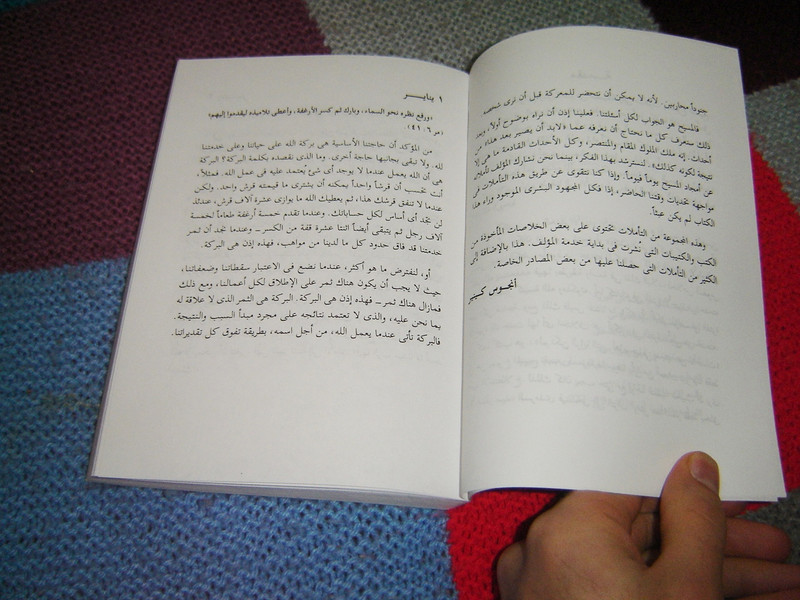 جنوداً محاربين. لأنه لا يمكن أن نتحضر للمعركة قبل أن نرى شخصه
فالمسيح هو الجواب لكل أسئلتنا. فعلينا إذن أن نراه بوضوح أولاً، وبعد
ذلك سنعرف كل ما نحتاج أن نعرفه عما «لابد أن يصير بعد هذا» من
أحداث. إنه ملك الملوك المقام والمنتصر، وكل الأحداث القادمة ما هى إلا
نتيجة لكونه كذلك». لنسترشد بهذا الفكر، بينما نحن نشارك المؤلف تأملاته
عن أمجاد المسيح يوماً فيوماً. وإذا كنا نتقوى عن طريق هذه التأملات فى
مواجهة تحديات وقتنا الحاضر، إذا فكل المجهود البشرى الموجود وراء هذا
الكتاب لم يكن عبثاً.
وهذه المجموعة من التأملات تحتوى على بعض الخلاصات المأخوذة من
الكتب والكتيبات التى نُشرت فى بداية خدمة المؤلف. هذا بالإضافة إلى
الكثير من التأملات التى حصلنا عليها من بعض المصادر الخاصة.
أنجوس كـينير
١ ينايـر
«ورفع نظره نحو السماء، وبارك ثم كسر الأرغفة، وأعطى تلاميذه ليقدموا إليهم»
(مر ٦: ٤١)
من المؤكد أن حاجتنا الأساسية هى بركة الله على حياتنا وعلى خدمتنا
لله. ولا تبقى بجانبها حاجة أخرى. وما الذى نقصده بكلمة البركة؟ البركة
هى أن الله يعمل عندما لا يوجد أى شئ يُعتمد عليه فى عمل الله. فمثلاً،
أنت تحسب أن قرشاً واحداً يمكنه أن يشترى ما قيمته قرش واحد. ولكن
عندما لا تنفق قرشك هذا، ثم يعطيك الله ما يوازى عشرة آلاف قرش، عندئذ
لن تجد أى أساس لكل حساباتك. وعندما تقدم خمسة أرغفة طعاماً لخمسة
آلاف رجل ثم يتبقى أيضاً اثنتا عشرة قفة من الكسر ــ وعندما تجد أن ثمر
خدمتنا قد فاق حدود كل ما لدينا من مواهب، فهذه إذن هى البركة.
أو، لنفترض ما هو أكثر، عندما نضع فى الاعتبار سقطاتنا وضعفاتنا،
حيث لا يجب أن يكون هناك ثمر على الإطلاق لكل أعمالنا، ومع ذلك
فمازال هناك ثمر ــ فهذه إذن هى البركة. البركة هى الثمر الذى لا علاقة له
بما نحن عليه، والذى لا تعتمد نتائجه على مجرد مبدأ السبب والنتيجة.
فالبركة تأتى عندما يعمل الله، من أجل اسمه، بطريقة تفوق كل تقديراتنا.